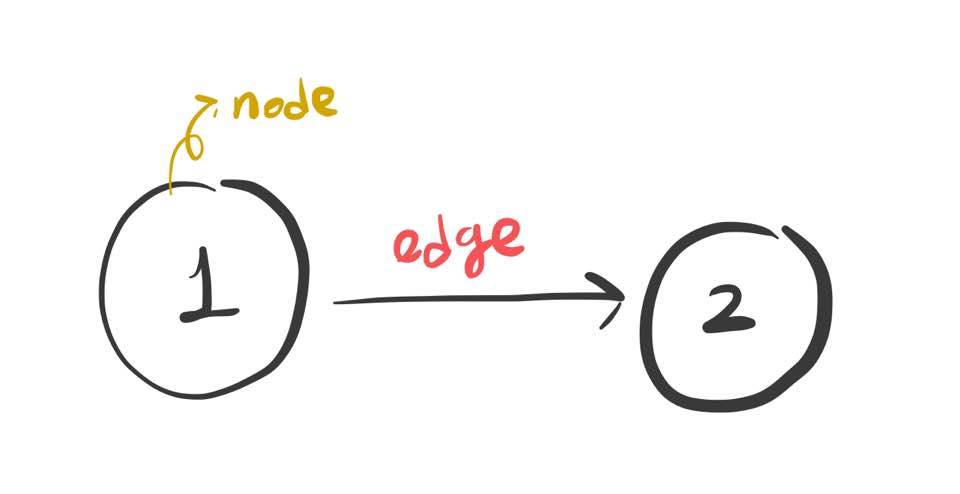 node
edge
1
2